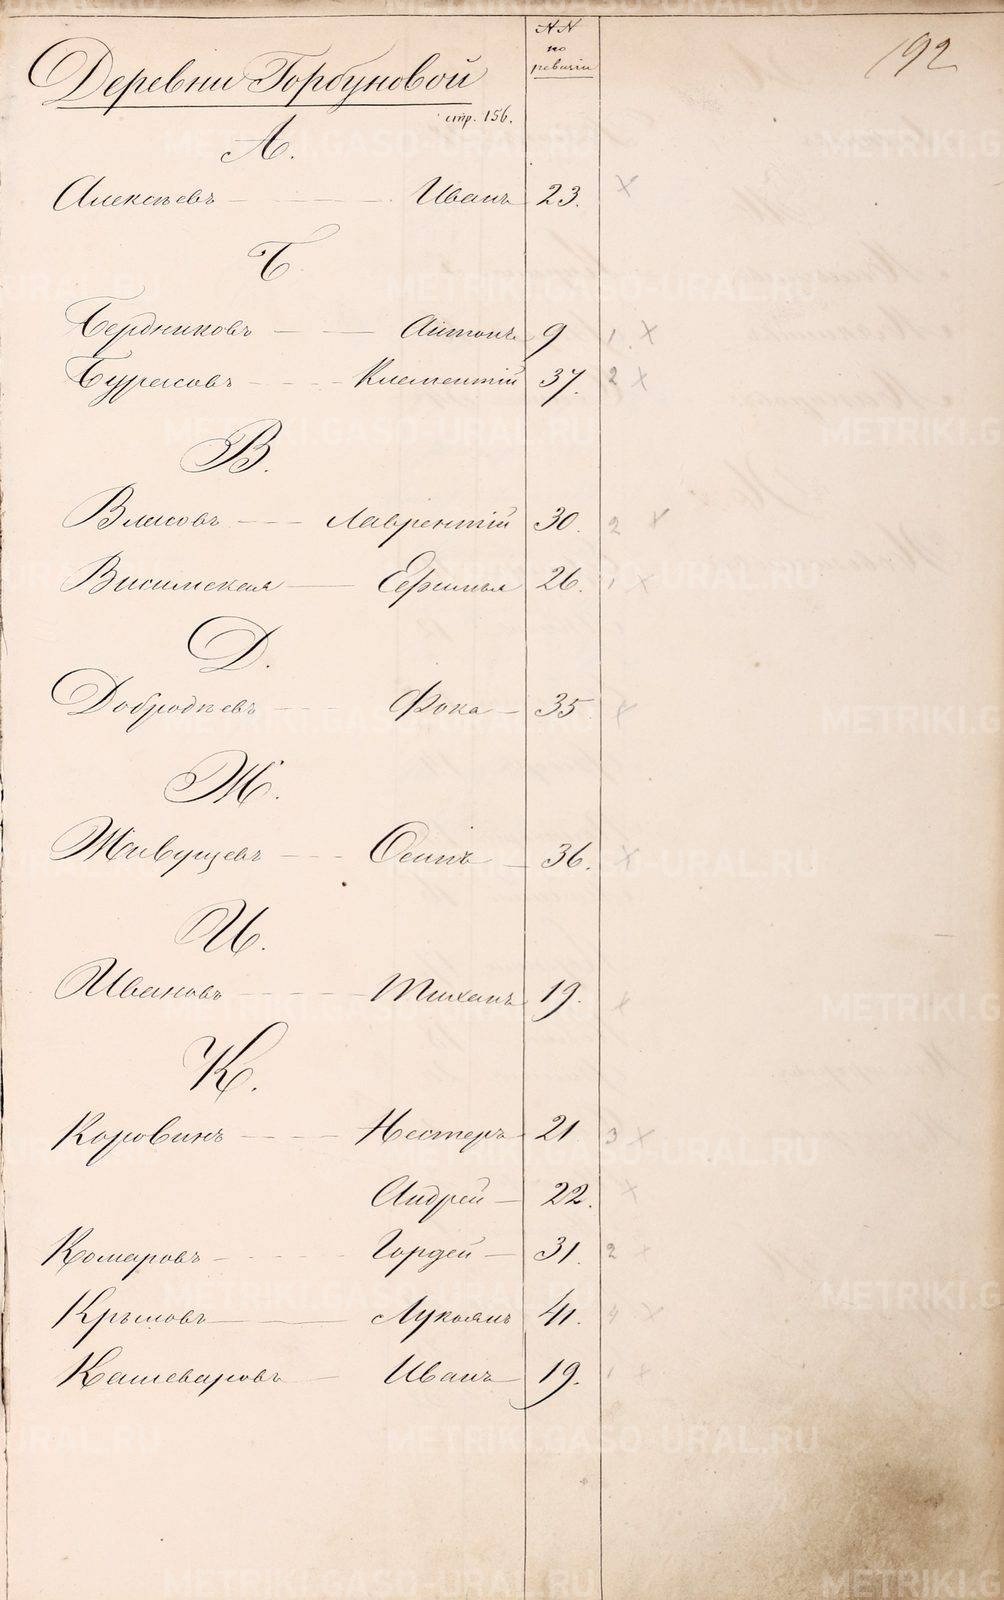 192
NN
по
ревизіи
Деревни Горбуновой
стр. 156.
А.
Алексѣевъ Иванъ 23.
Б.
Бердниковъ Антонъ 9 1. х
Бурасовъ Клементій 37. 2 х
В.
Власовъ Лаврентій 30. 2 х
Висимская Ефимья 26. 1 х
Д.
Добродѣевъ Фока 35. х
Ж.
Живущевъ Осипъ 36. х
И.
Ивановъ 19. х
К.
Коровинъ Нестеръ 21. 3 х
Андрей 22. х
Комаровъ Гордей 31. 2 х
Крыловъ Лукоянъ 41. 4 х
Кашеваровъ Иванъ 19. 1 х
METRIKI.GASO-URAL.RU